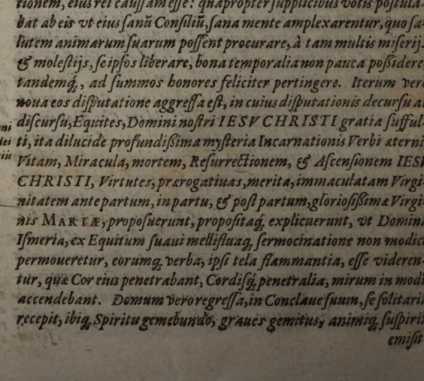 tionem, eius rei causam esse: quapropter supplicibus votis postula-
bat ab eis vt eius sanū Consiliū, sana mente amplexarentur, quo sa-
lutem animarum suarum possent procurare, à tam multis miserijs
& molestijs, seipsos liberare, bona temporalia non pauca possidere,
tandemq́;, ad summos honores feliciter pertingere. Iterum verò
noua eos disputatione aggressa est, in cuius disputationis decursu ac
discursu, Equites, Domini nostri IESV CHRISTI gratia sufful-
ti, ita dilucide profundissima mysteria Incarnationis Verbi æterni
Vitam, Miracula, mortem, Resurrectionem, & Ascensionem IESV
CHRISTI, Virtutes, prærogatiuas, merita, immaculatam Virgi-
nitatem ante partum, in partu, & post partum, gloriosissimæ Virgi-
nis MARIÆ, proposuerunt, propositaq́; explicuerunt, vt Domina
Ismeria, ex Equitum suaui mellifluaq́; sermocinatione non modicè
permoueretur, eorumq́; verba, ipsi tela flammantia, esse videren-
tur, quæ Cor eius penetrabant, Cordisq́; penetralia, mirum in modum
accendebant. Domum vero regressa, in Conclaue suum, se solitariè
recepit, ibiq́; Spiritu gemebundo, graues gemitus, animiq́; suspiria
emisit